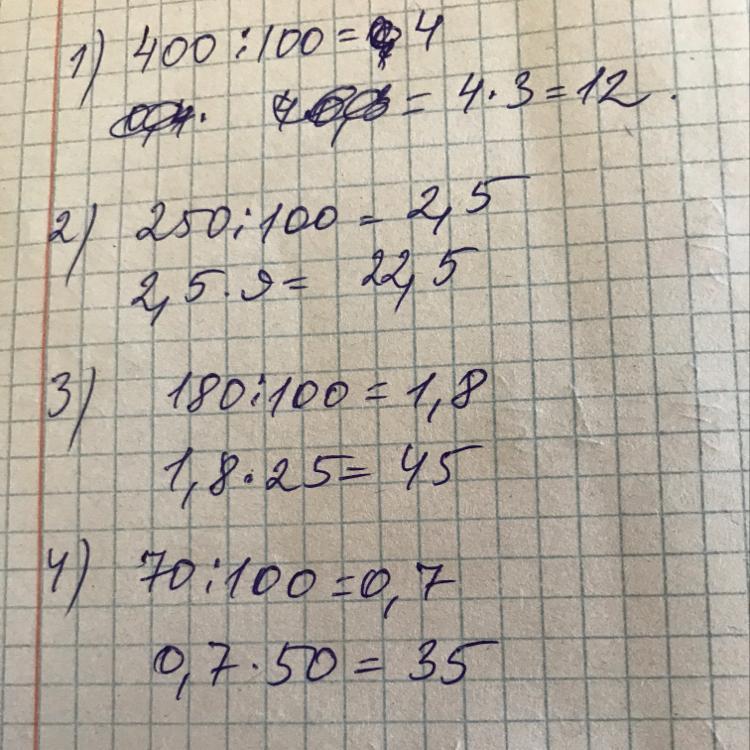 1) 400 : 100 = 4
= 4 · 3 = 12.
2) 250 : 100 = 2,5
2,5 · 9 = 22,5
3) 180 : 100 = 1,8
1,8 · 25 = 45
4) 70 : 100 = 0,7
0,7 · 50 = 35